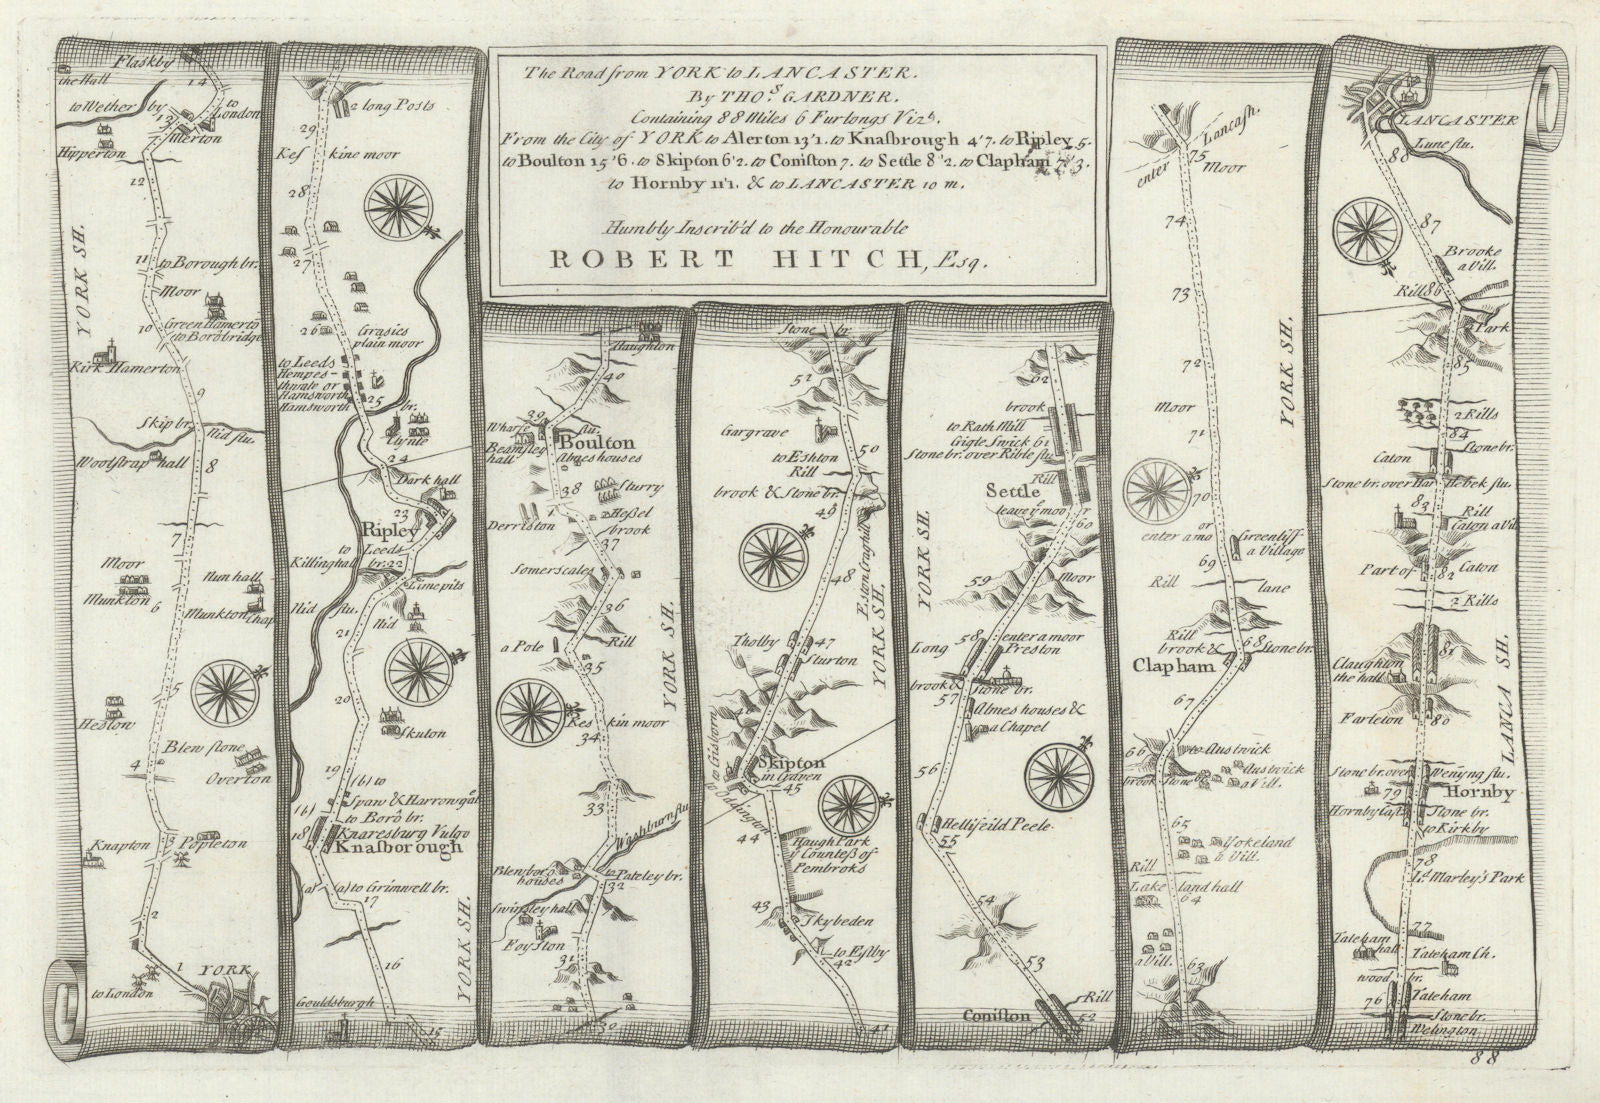 The Road from YORK to LANCASTER.
By THO.S GARDNER.
Containing 88 Miles 6 Furlongs Vizt.
From the City of YORK to Alerton 13'1. to Knasbrough 4'7. to Ripley 5.
to Boulton 15'6. to Skipton 6'2. to Coniston 7. to Settle 8'2. to Clapham 7'3.
to Hornby 11'1. & to LANCASTER 10 m.
Humbly Inscrib'd to the Honourable
ROBERT HITCH, Esq.
Flaskby
14
the Hall
to Wether by
to
London
13
Alerton
Hipperton
12
YORK SH.
11
to Borough br.
Moor
10
Green Hamerto
to Borobridge
Kirk Hamerton
9
Skip br.
Nid flu.
Woolstrap hall
8
7
Moor
Nun hall
Munkton
6
Munkton
Chap
5
Heslow
Blew stone
4
Overton
Knapton
3
Popleton
2
1
YORK
to London
2 long Posts
29
Kes kine moor
28
27
26
Grasies
plain moor
to Leeds
Hempes-
thwate or
Hamsworth
Hamsworth
25
br.
Clynte
24
Dark hall
23
Ripley
to
Leeds
Killinghall
br. 22
Lime pits
Nid flu.
Nid
21
20
Skuton
19
(b) to
Spaw & Harrowgat
(b)
to Boro br.
18
Knaresburg Vulgo
Knasborough
(a)
(a) to Grimwell br.
17
YORK SH.
16
Gouldsburgh
15
Haughton
40
39
Wharfe flu.
Boulton
Beamsley
hall
Almes houses
38
Sturry
Derriston
Hessel
brook
37
Somerscales
36
a Pole
Rill
35
YORK SH.
Kes kin moor
34
33
Washburn flu
Blewboro
houses
to Pateley br.
32
Swinsley hall
Foyston
31
30
Stone br
51
Gargrave
50
to Eshton
Rill
brook & Stone br.
49
Eston Craghill
48
YORK SH.
Tholby
47
Sturton
to Gisborn
Skipton
in Craven
45
to Idington
44
Haugh Park
ye Countess of
Pembroks
43
Skybeden
to Esby
42
41
62
brook
to Rath Mill
Gigle Swick 61
Stone br. over Rible flu
Rill
Settle
leave ye moor
60
YORK SH.
59
Moor
58
enter a moor
Long
Preston
brook &
Stone br.
57
Almes houses &
a Chapel
56
Hellifeild Peele
55
54
53
Rill
Coniston
52
Lancash.
75
enter
Moor
74
73
YORK SH.
72
Moor
71
70
or
enter a mo
Greencliff
a Village
69
Rill
lane
Rill
68
brook &
Stone br.
Clapham
67
66
to Austwick
brook Stone
Austwick
a Vill.
65
Yokeland
a Vill.
Rill
Lake land hall
64
a Vill.
63
LANCASTER
Lune flu.
88
87
Brooke
a Vill.
Rill 86
Park
85
2 Rills
84
Stone br.
Caton
Stone br. over Har Hebek flu.
83
Rill
Caton a Vil
Part of Caton
82
2 Rills
Claughton
81
the hall
Farleton
80
LANCA SH.
Stone br. over Wenyng flu.
79
Hornby
Hornby Castl
Stone br.
to Kirkby
78
Ld. Marley's Park
77
Tateham
hall
Tateham Ch.
wood br.
76
Tateham
Stone br.
Welington
88